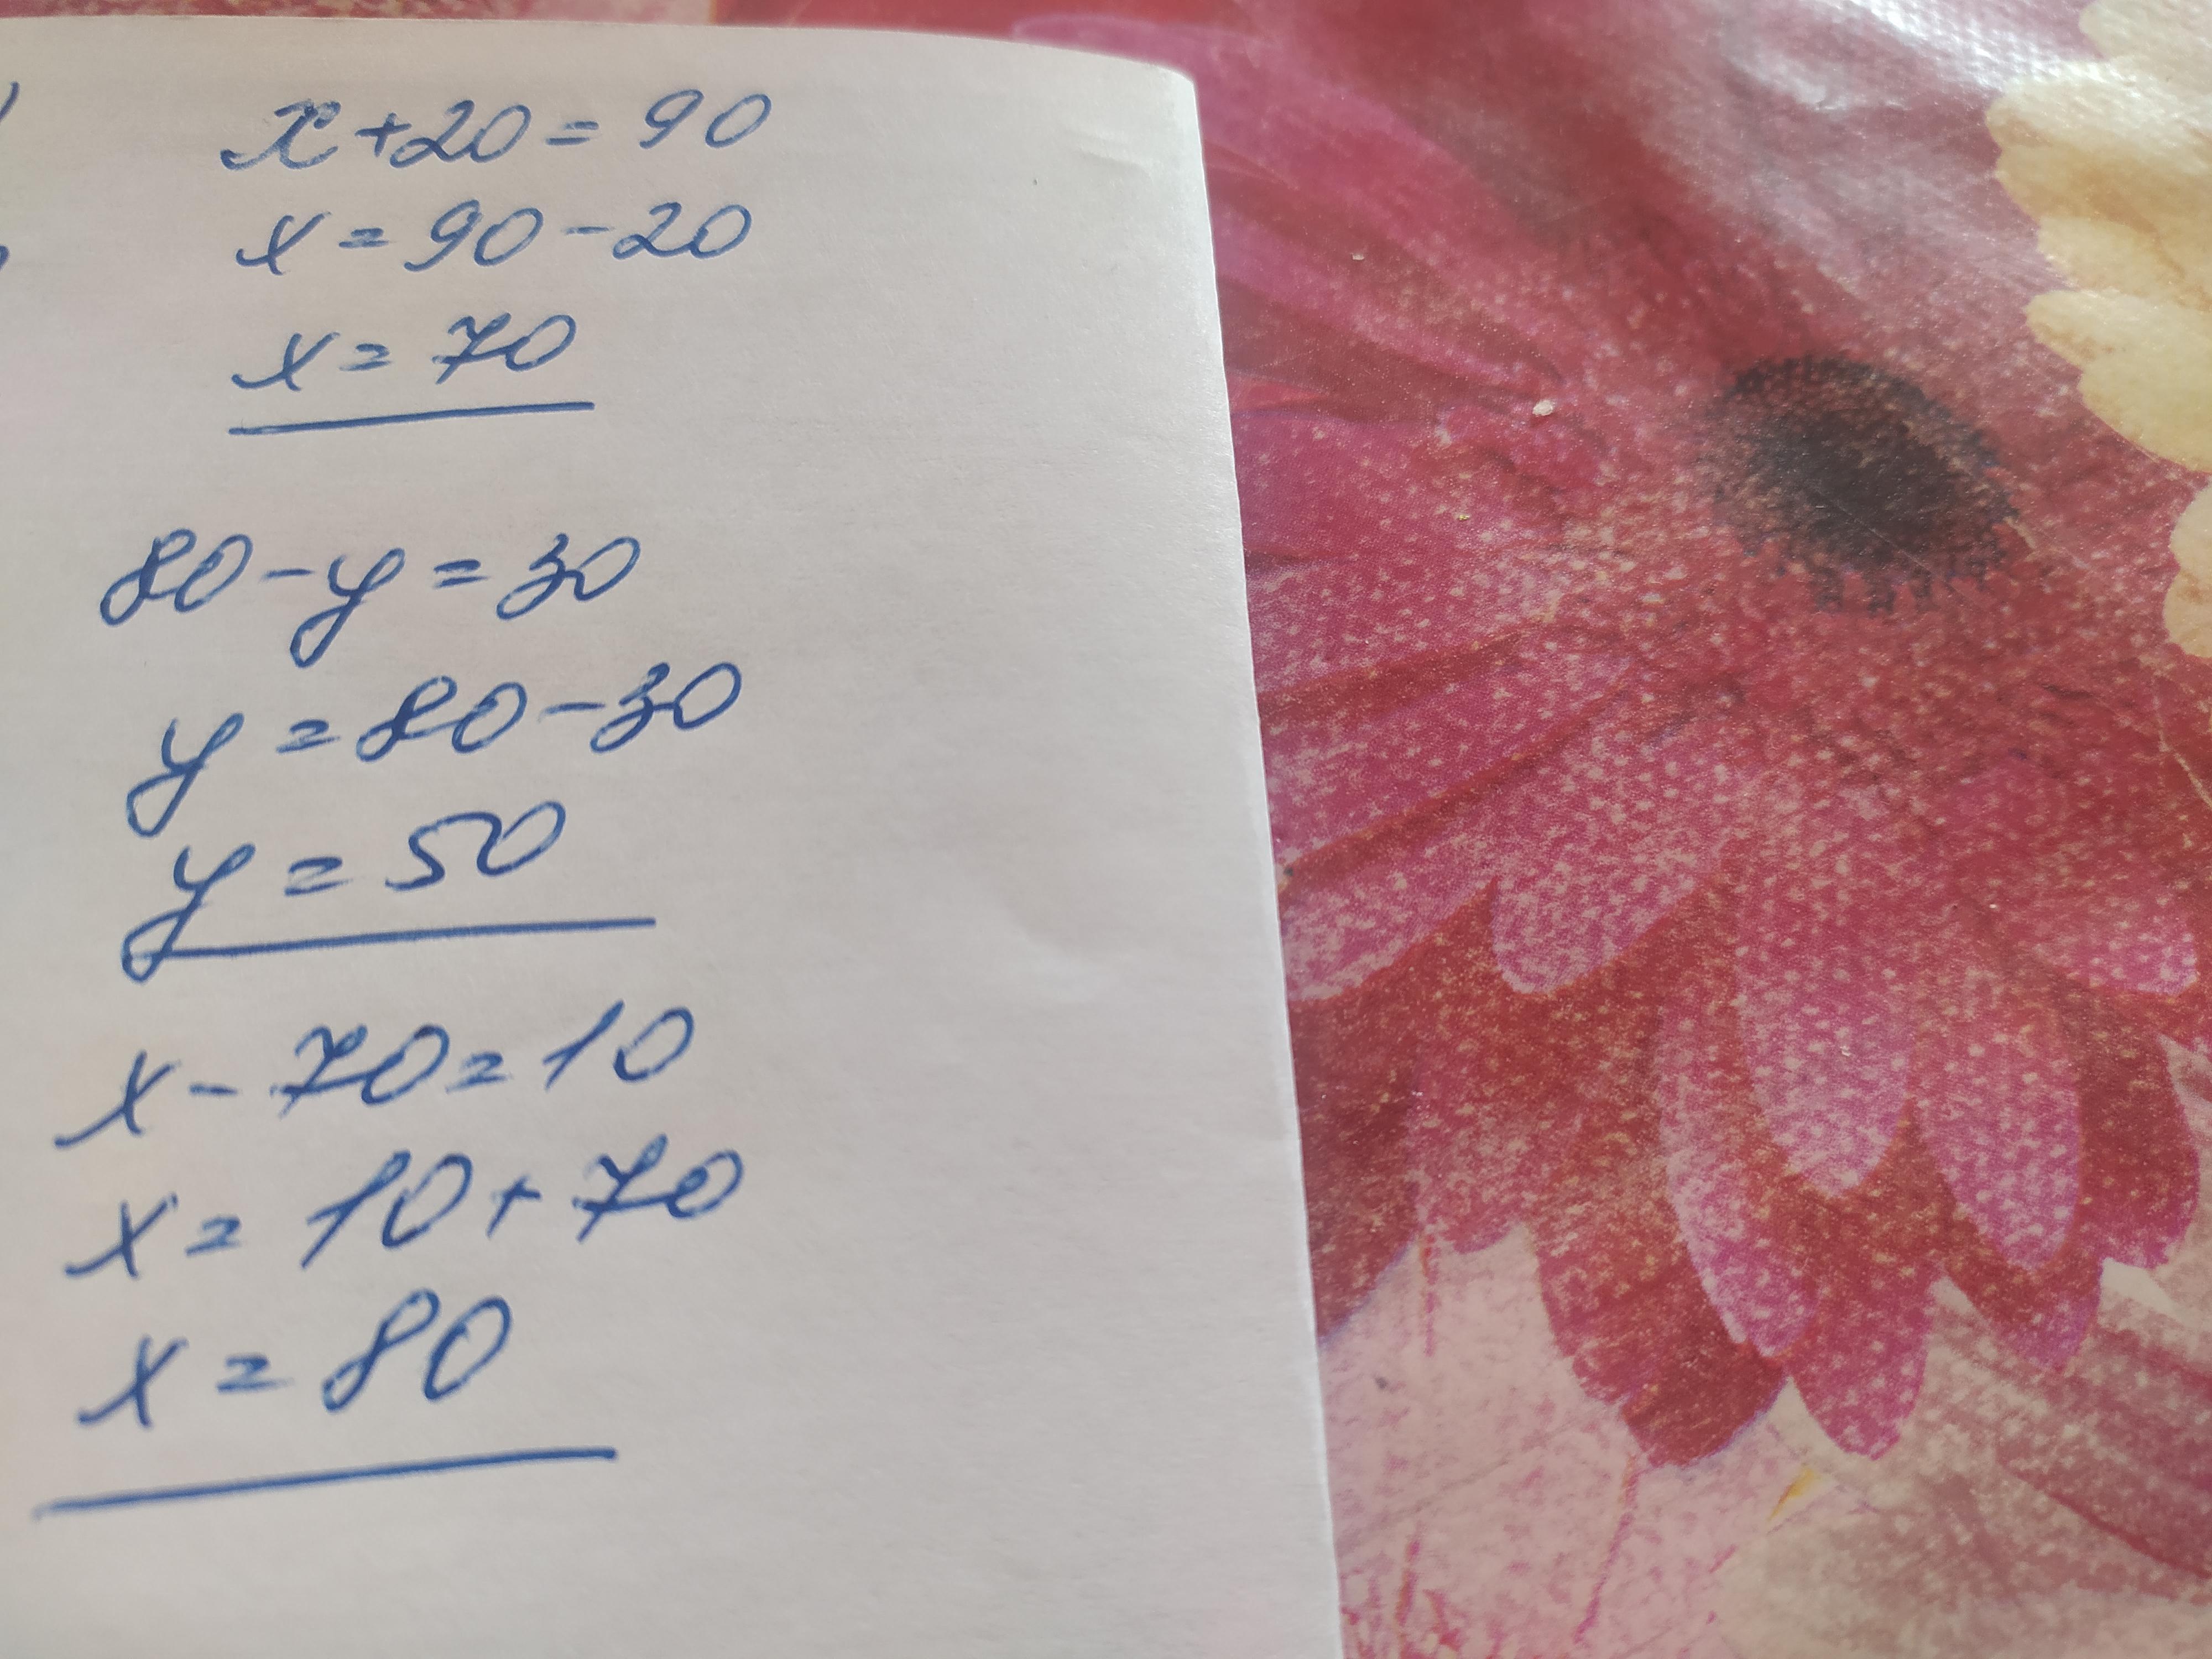 x+20=90
x=90-20
x=70
80-y=30
y=80-30
y=50
x-70=10
x=10+70
x=80